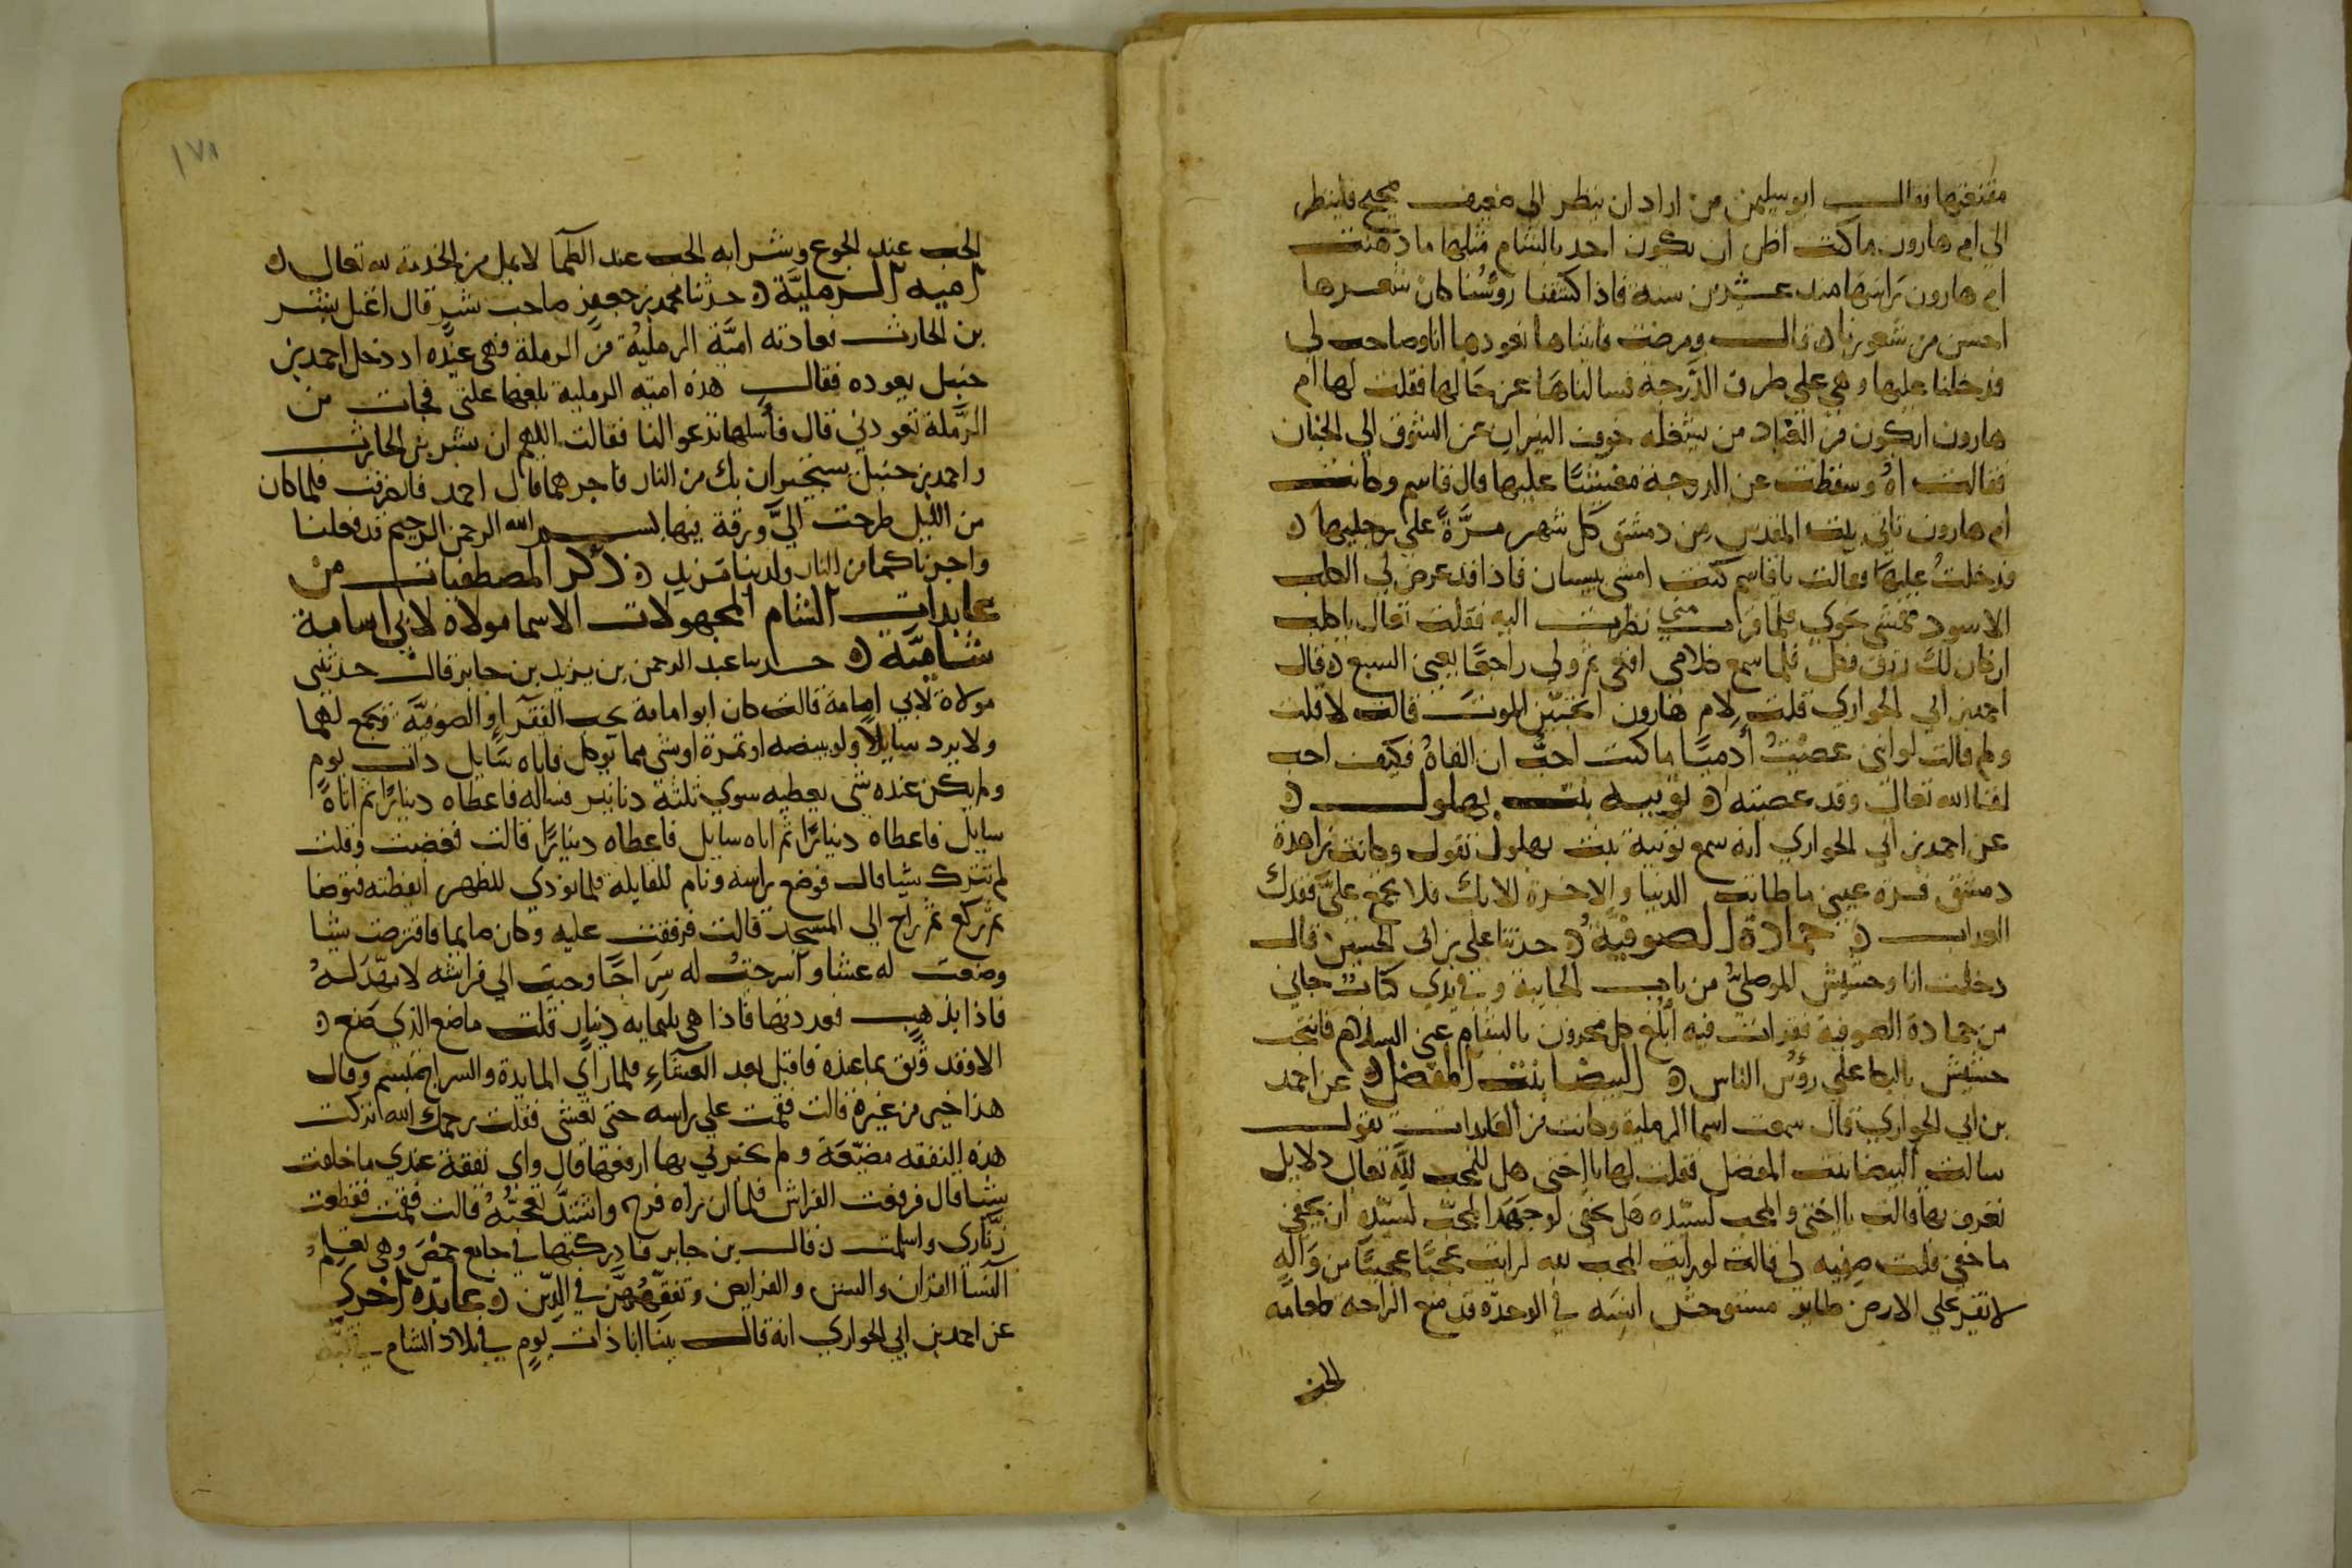 مقنعتها فقالت ابو سليمن من اراد ان ينظر الى صحيح فلينظر
الي ام هارون ما كنت اظن ان يكون احد بالشام مثلها ما دهنت
ام هارون راسها منذ عشرين سنة فاذا كشفنا روسنا كان شعرها
احسن من شعورنا قال ومرضت فاتيناها نعودها انا وصاحب لي
فدخلنا عليها وهي علي طرف الدرجة فسالناها عن حالها فقلت لها ام
هارون ايكون من العباد من يشغله خوف النيران عن الشوق الي الجنان
فقالت اه وسقطت عن الدرجة مغشيا عليها قال قاسم وكانت
ام هارون تاتي بيت المقدس من دمشق كل شهر مرة على رجليها
فدخلت عليها فقالت يا قاسم كنت امشي ببيسان فاذا قد عرض لي الكلب
الاسود يمشي نحوي فلما قرب مني نظرت اليه فقلت تعال يا كلب
ان كان لك رزق فكل فلما سمع كلامي اقعى ثم ولى راجعا يعني السبع قال
احمد بن ابي الحواري قلت لام هارون اتحبين الموت قالت لا قلت
ولم قالت لو اني عصيت ادميا ما كنت احب ان القاه فكيف احب
لقا الله تعالى وقد عصيته ثويبة بنت بهلول
عن احمد بن ابي الحواري انه سمع ثويبة بنت بهلول تقول وكانت زاهدة
دمشق قرة عيني ما طابت الدنيا والاخرة الا بك فلا تجمع علي فقدك
والعذاب حمادة الصوفية حدثنا علي بن ابي الحسين قال
دخلت انا وحشيش الموصلي من باب الجابية وفي يدي كتاب جاني
من حمادة الصوفية فقرات فيه ابلغ كل محزون بالشام عني السلام فانتحب
حشيش بالبكا على روس الناس البيضا بنت المفضل عن احمد
بن ابي الحواري قال سمعت اسما الرملية وكانت من العابدات تقول
سالت البيضا بنت المفضل فقلت لها يا اختي هل للمحب لله تعالى دلايل
تعرف بها قالت يا اختي والمحب لسيده هل يخفى لو جهد المحب لسيده ان يخفى
ما خفي قلت صفيه لي قالت لو رايت المحب لله لرايت عجبا عجيبا من واله
لا يقر على الارض طاير مستوحش انسه في الوحدة قد منع الراحة طعامه
الحب
١٧٨
الحب عند الجوع وشرابه الحب عند الظما لا يمل من الخدمة لله تعالى
امية الرملية حدثنا محمد بن جعفر صاحب بشر قال اعتل بشر
بن الحارث فعادته امية الرملية من الرملة فهي عنده اذ دخل احمد بن
حنبل يعوده فقال هذه امية الرملية بلغها علتي فجات من
الرملة تعودني قال فاسلها تدعو لنا فقالت اللهم ان بشر بن الحارث
واحمد بن حنبل يستجيران بك من النار فاجرهما قال احمد فانصرفت فلما كان
من الليل طرحت الي ورقة فيها بسم الله الرحمن الرحيم قد فعلنا
واجرناكما من النار ولدينا مزيد ذكر المصطفيات من
عابدات الشام المجهولات الاسما مولاة لابي امامة
شامية حدثنا عبد الرحمن بن يزيد بن جابر قال حدثتني
مولاة لابي امامة قالت كان ابو امامة يحب الفقراء والصوفية ويجمع لهما
ولا يرد سايلا ولو ببيضه او تمرة او شي مما يوكل فاتاه سايل ذات يوم
ولم يكن عنده شي يعطيه سوى ثلثة دنانير فساله فاعطاه دينارا ثم اتاه
سايل فاعطاه دينارا ثم اتاه سايل فاعطاه دينارا قالت فغضبت وقلت
لم تترك شيا قال فوضع راسه ونام للقايلة فلما نودي للظهر ايقظته فتوضا
ثم ركع ثم راح الى المسجد قالت فرققت عليه وكان صايما فاقترضت شيا
وصنعت له عشا واسرجت له سراجا وجيت الى فراشه لامهد له
فاذا بذهب فعددتها فاذا هي ثلثمايه دينار قلت ما صنع الذي صنع
الا وقد وثق بما عنده فاقبل بعد العشاء فلما راى المايدة والسراج تبسم وقال
هذا خير من غيره قالت فقمت على راسه حتى تعشى فقلت رحمك الله تركت
هذه النفقه مضيعة ولم تخبرني بها ارفعها قال واي نفقة عندي ما خلفت
شيا قال فرفعت الفراش فلما ان راه فرح واشتد تعجبه قالت فقمت فقطعت
زناري واسلمت قال بن جابر فادركتها في جامع حمص وهي تعلم
النسا القران والسنن والفرايض وتفقههن في الدين عابدة اخرى
عن احمد بن ابي الحواري انه قال بينا انا ذات يوم في بلاد الشام في قبة